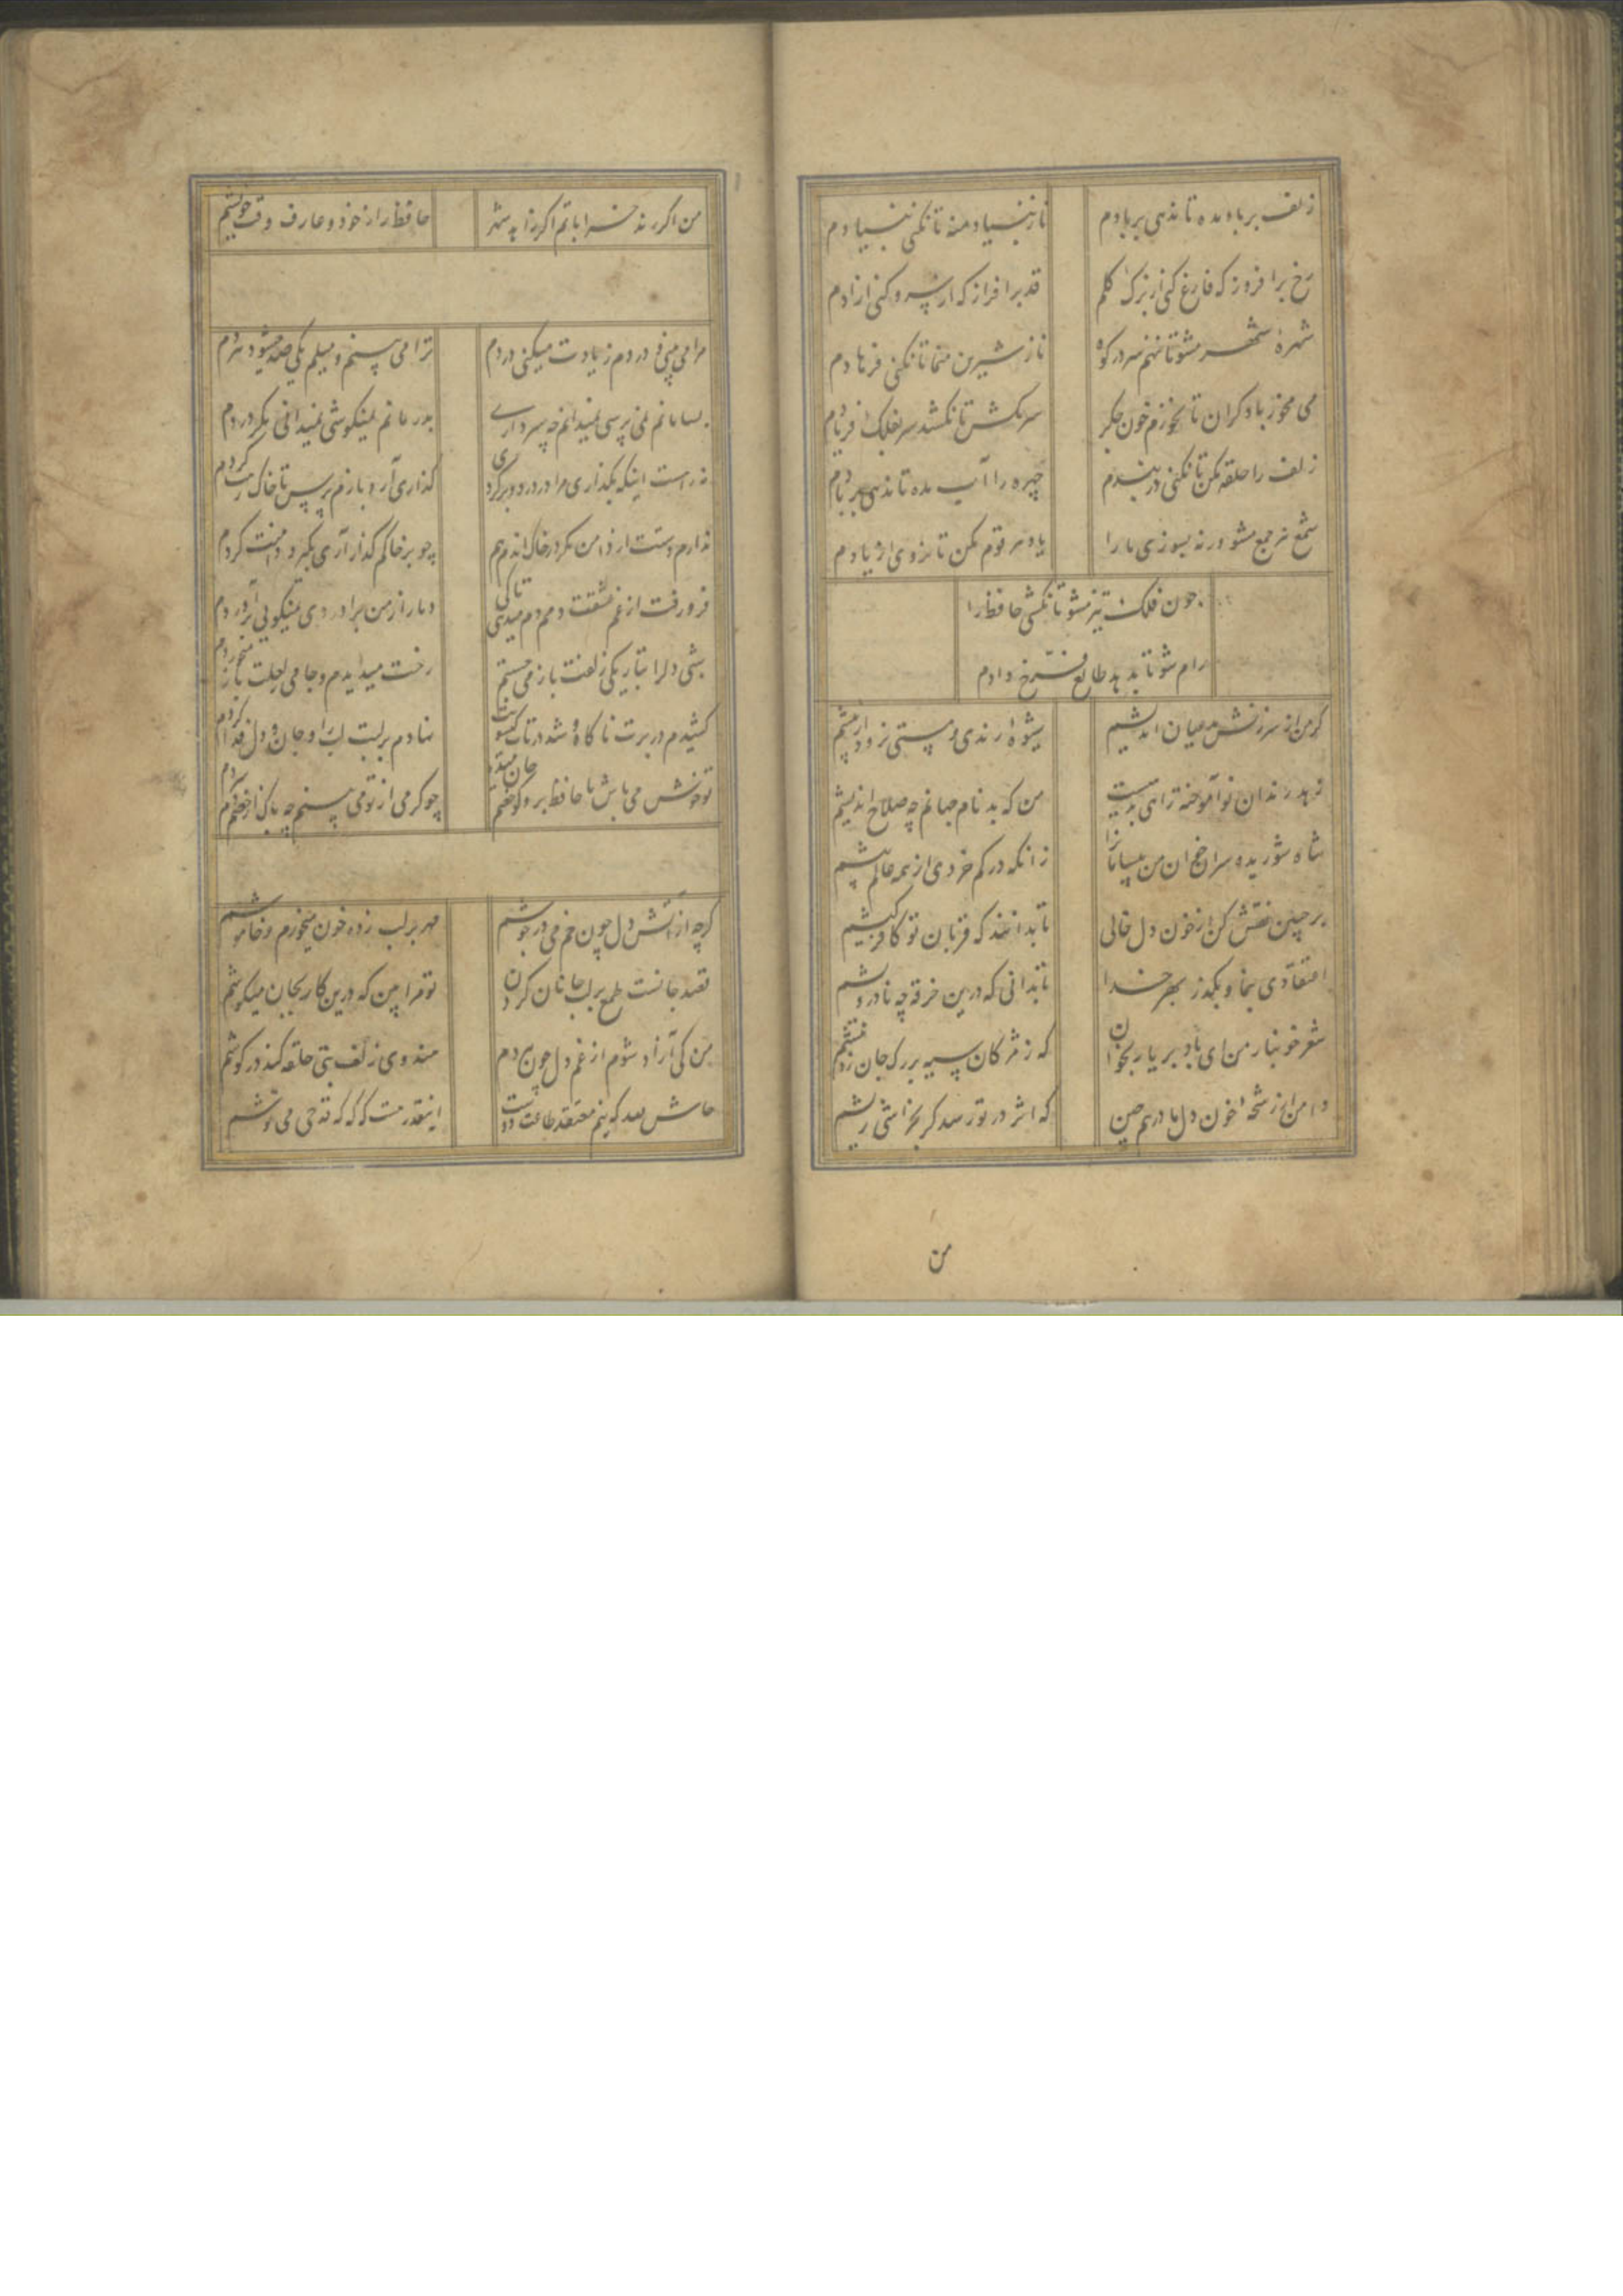 زلف بر باد مده تا ندهی بر بادم
ناز بنیاد منه تا نکنی بنیادم
رخ برافروز که فارغ کنی از برک کلم
قد برافراز که از سرو کنی ازادم
شهرهٔ شهر مشو تا ننهم سر در کوه
ناز شیرین منما تا نکنی فرهادم
می مخور با دکران تا نخورم خون جکر
سر مکش تا نکشد سر بفلک فریادم
زلف را حلقه مکن تا نکنی در بندم
چهره را آب مده تا ندهی بر بادم
شمع هر جمع مشو ورنه بسوزی ما را
یاد هر قوم مکن تا نروی از یادم
چون فلک تیز مشو تا نکشی حافظ را
رام شو تا بدهد طالع فرخ دادم
کر من از سرزنش مدعیان اندیشم
شیوهٔ رندی و مستی نرود از پیشم
زهد رندان نوآموخته راهی بدهیست
من که بدنام جهانم چه صلاح اندیشم
شاه شوریده سران خوان من بیسامانرا
زانکه در کم خردی از همه عالم پیشم
بر جبین نقش کن از خون دل خالی
تا بدانند که قربان تو کافر کیشم
اعتقادی بنما و بکذر بهر خدا
تا بدانی که درین خرقه چه نادرویشم
شعر خونبار من ای باد بر یار بخوان
که ز مژکان سیه بر رک جان زد نیشم
دامن از رشحهٔ خون دل ما درهم چین
که اثر در تو رسد کر بخراشی ریشم
من
من اکر رند خراباتم اکر زاهد شهر
حافظ راز خود و عارف وقت خویشم
مرا می بینی و دردم زیادت میکنی دردم
ترا می بینم و میلم یکی صد میشود هر دم
بسامانم نمی پرسی نمیدانم چه سر داری
بدرمانم نمیکوشی نمیدانی مکر دردم
نه راست اینکه بکذاری مرا در درد و برکردی
کذاری آر و بازم پرس تا خاک رهت کردم
ندارم دستت از دامن مکر در خاک اندم هم
چو بر خاکم کذار آری بکیرد دامنت کردم
فرو رفت از غم عشقت دمم دم میدهی تا کی
دمار از من برآوردی نمیکویی برآوردم
شبی دل را بتاریکی ز زلفت باز می جستم
رخت میدیدم و جامی ز لعلت باز میخوردم
کشیدم در برت ناکاه و شد در تاب کیسویت
نهادم بر لبت لب را و جان و دل فدا کردم
تو خوش می باش با حافظ برو کو خصم جان میده
چو کرمی از تو می بینم چه باک از خصم دم سردم
کرچه از آتش دل چون خم می در جوشم
مهر بر لب زده خون میخورم و خاموشم
قصد جانست طمع بر لب جانان کردن
تو مرا بین که درین کار بجان میکوشم
من کی آزاد شوم از غم دل چون هر دم
هندوی زلف بتی حلقه کند در کوشم
حاش لله که نیم معتقد طاعت دوست
اینقدر هست که که که قدحی می نوشم